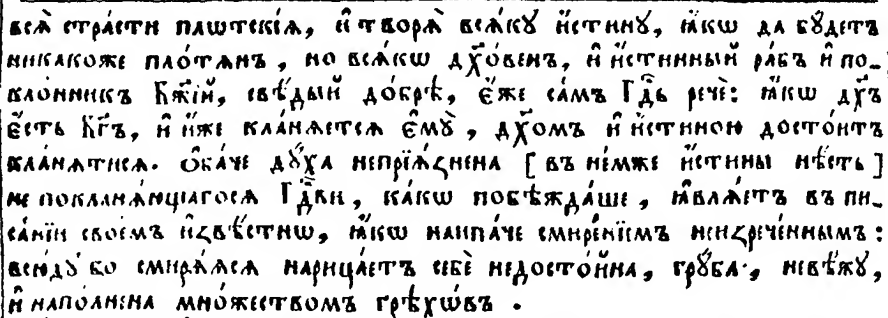 всѧ̑ стра́сти плѡтскі́ѧ, и҆ творѧ̀ всѧ́кꙋ и҆́стинꙋ, ꙗ҆́кѡ да бꙋ́детъ
никакоже пло́тѧнъ, но всѧ́кѡ дх҃о́венъ, и҆ и҆́стинный ра́бъ и҆ по-
клонникъ Бж҃їй, свѣ́дый до́брѣ, є҆́же са́мъ Гд҇ь речѐ: ꙗ҆́кѡ дх҃ъ
є҆́сть Бг҃ъ, и҆ и҆́же кла́нѧетсѧ є҆мꙋ̀, дх҃омъ и҆ и҆́стиною досто́итъ
кла́нѧтисѧ. Ѻ҆ба́че дꙋ́ха непрїѧ́знена [ въ не́мже и҆́стины нѣ́сть ]
не покланѧ́ющагосѧ Гд҇ви, ка́кѡ побѣжда́ше, ꙗ҆влѧ́етъ въ пи-
са́нїи свое́мъ и҆звѣ́стнѡ, ꙗ҆́кѡ наипа́че смире́нїемъ неизрече́ннымъ:
всю́дꙋ бо смирѧ́ѧсѧ нарица́етъ себѐ недосто́йна, грꙋ́ба, невѣ́жꙋ,
и҆ напо́лнена мно́жествомъ грѣхѡ́въ .